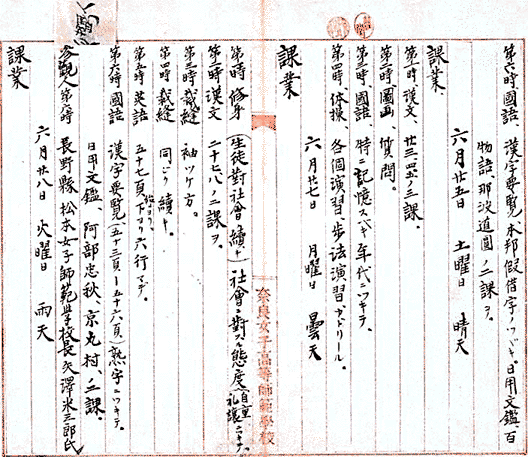 第六時 國語 漢字要覽、本邦假借字ノツヾキ。日用文鑑、百
物語、那波道圓ノ二課ヲ。
六月廿五日 土曜日 晴天
課業、
第一時、漢文、廿三、四、五ノ三課。
第二時、圖画、質問。
第三時、國語 特ニ記憶スベキ年代ニツキテ。
第四時、体操、各個演習、歩法演習、ナドリール。
六月廿七日 月曜日 曇天
課業
第一時 修身 (生徒對社會ノ續キ) 社會ニ對スル態度(自重礼譲)ニツキテ。
第二時 漢文 二十七、八ノ二課ヲ。
第三時 裁縫 袖ツケ方。
第四時 裁縫 同ジク續キ。
第五時 英語 五十七頁、下ヨリ六行マデ。
第六時 國語 漢字要覽(五十三頁ー五十六頁)熟字ニツキテ。
日用文鑑、阿部忠秋、京丸村、ノ二課。
参觀人 第六時 長野縣松本女子師範學校長矢澤米三郎氏
六月廿八日 火曜日 雨天
課業
奈良女子高等師範學校